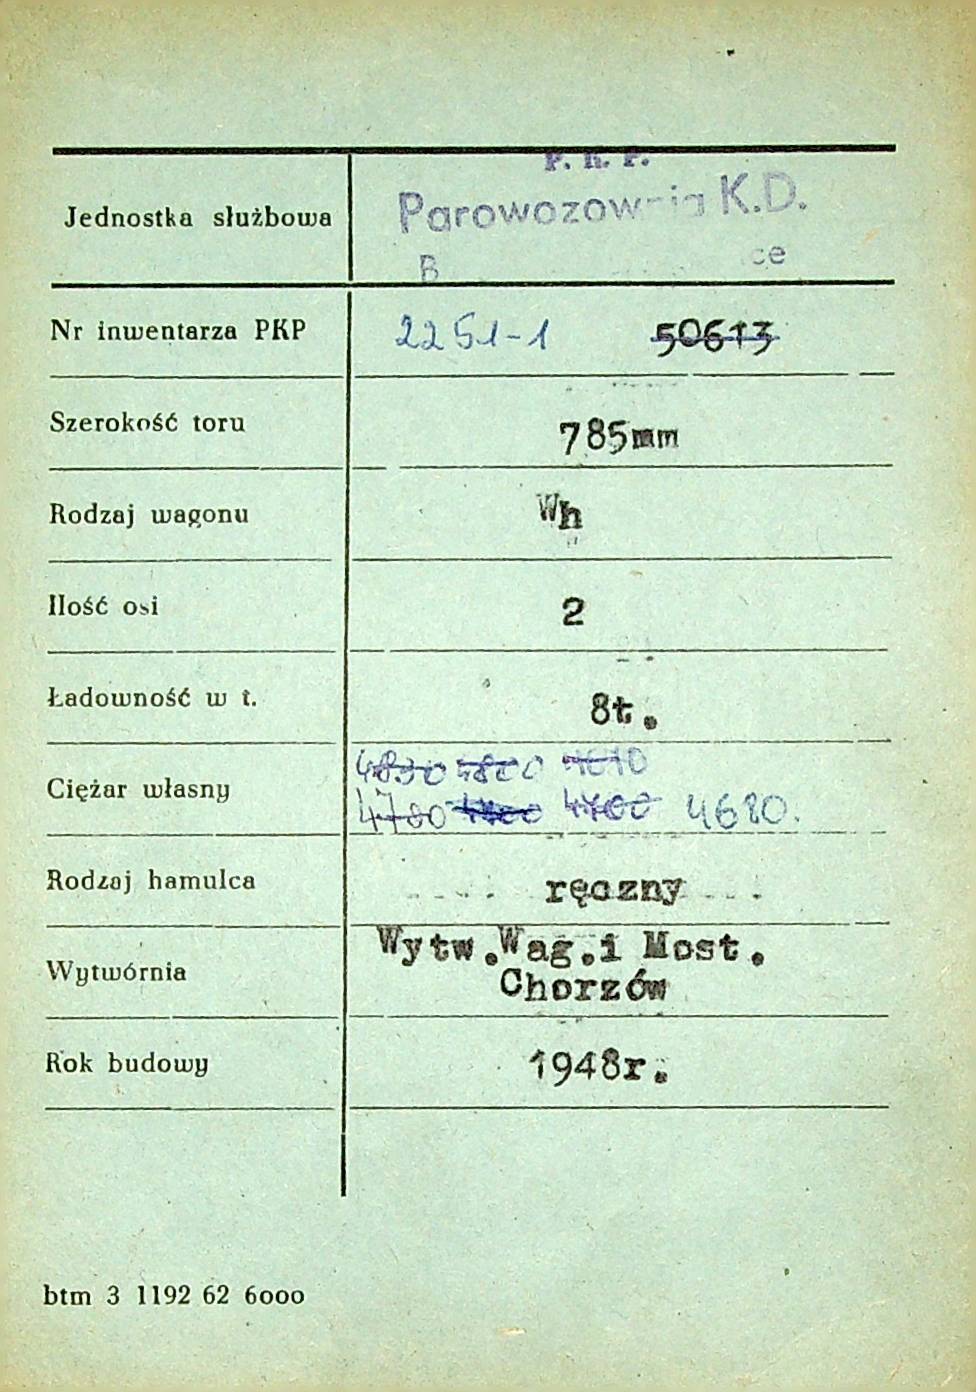 P. K. P.
Jednostka służbowa Parowozownia K.D.
Nr inwentarza PKP 2251-1 50613
Szerokość toru 785mm
Rodzaj wagonu Wh
Ilość osi 2
Ładowność w t. 8t.
Ciężar własny 4830 4800
4780 4680.
Rodzaj hamulca ręczny
Wytwórnia Wytw.Wag.i Most.
Chorzów
Rok budowy 1948r.
btm 3 1192 62 6000